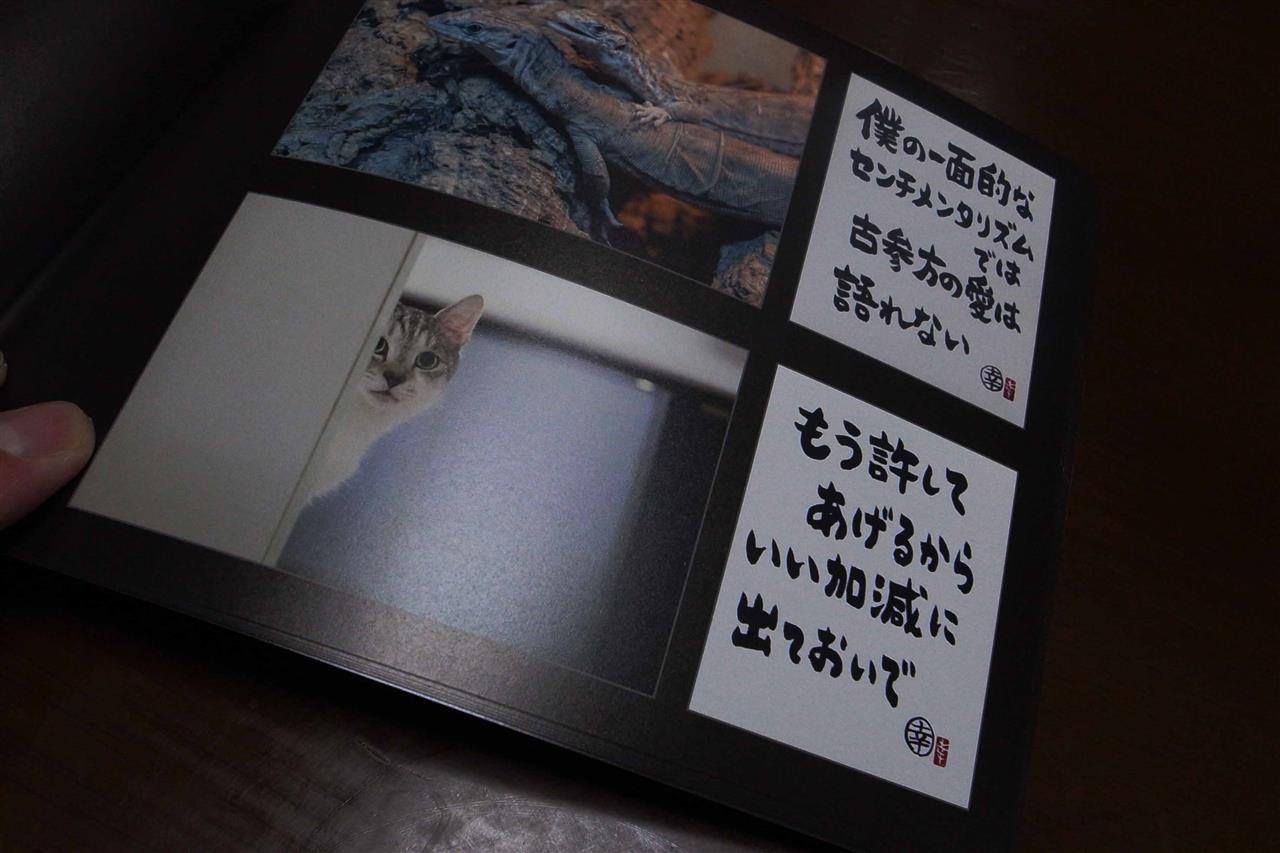 僕の一面的な
センチメンタリズム
では
古参方の愛は
語れない
幸
もう許して
あげるから
いい加減に
出ておいで
幸